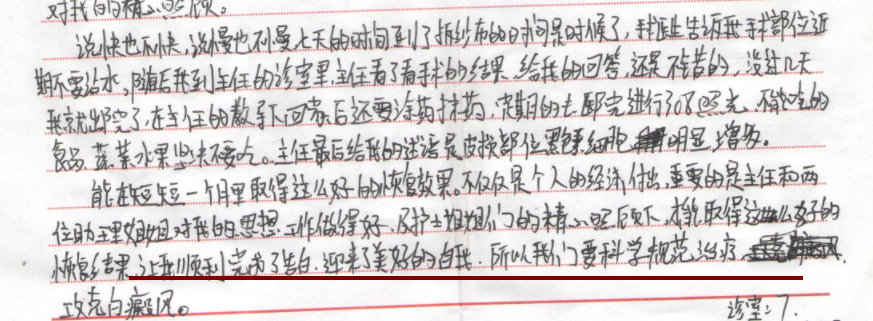 对我的精心照顾。
说快也不快,说慢也不慢七天的时间到了拆纱布的时间是时候了,手术医生告诉我手术部位近
期不要沾水,随后我到主任的诊室里,主任看了看手术的结果,给我的回答,还是不错的,没过几天
我就出院了,在主任的教导下回家后还要涂药抹药,定期的去医院进行308照光,不能吃的
食品,蔬菜水果坚决不要吃。主任最后给我的述语是皮损部位黑色素细胞明显增多。
能在短短一个月里取得这么好的恢复效果。不仅仅是个人的经济付出,重要的是主任和两
位助理姐姐对我的思想工作做得好,及护士姐姐们的精心照顾下,才能取得这么好的
恢复结果,让我顺利完成了告白,迎来了美好的自我,所以我们要科学规范治疗
攻克白癜风。
诊室:7.